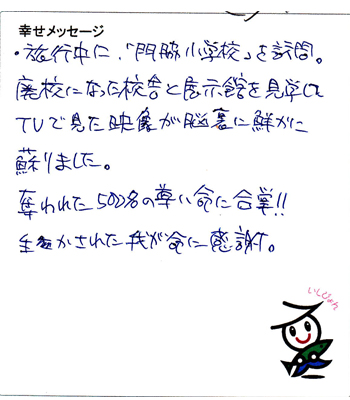 幸せメッセージ
・旅行中に、「門脇小学校」を訪問。
廃校になった校舎と展示館を見学して
TVで見た映像が脳裏に鮮かに
蘇りました。
奪われた502名の尊い命に合掌!!
生かされた我が命に感謝。
いしぴょん